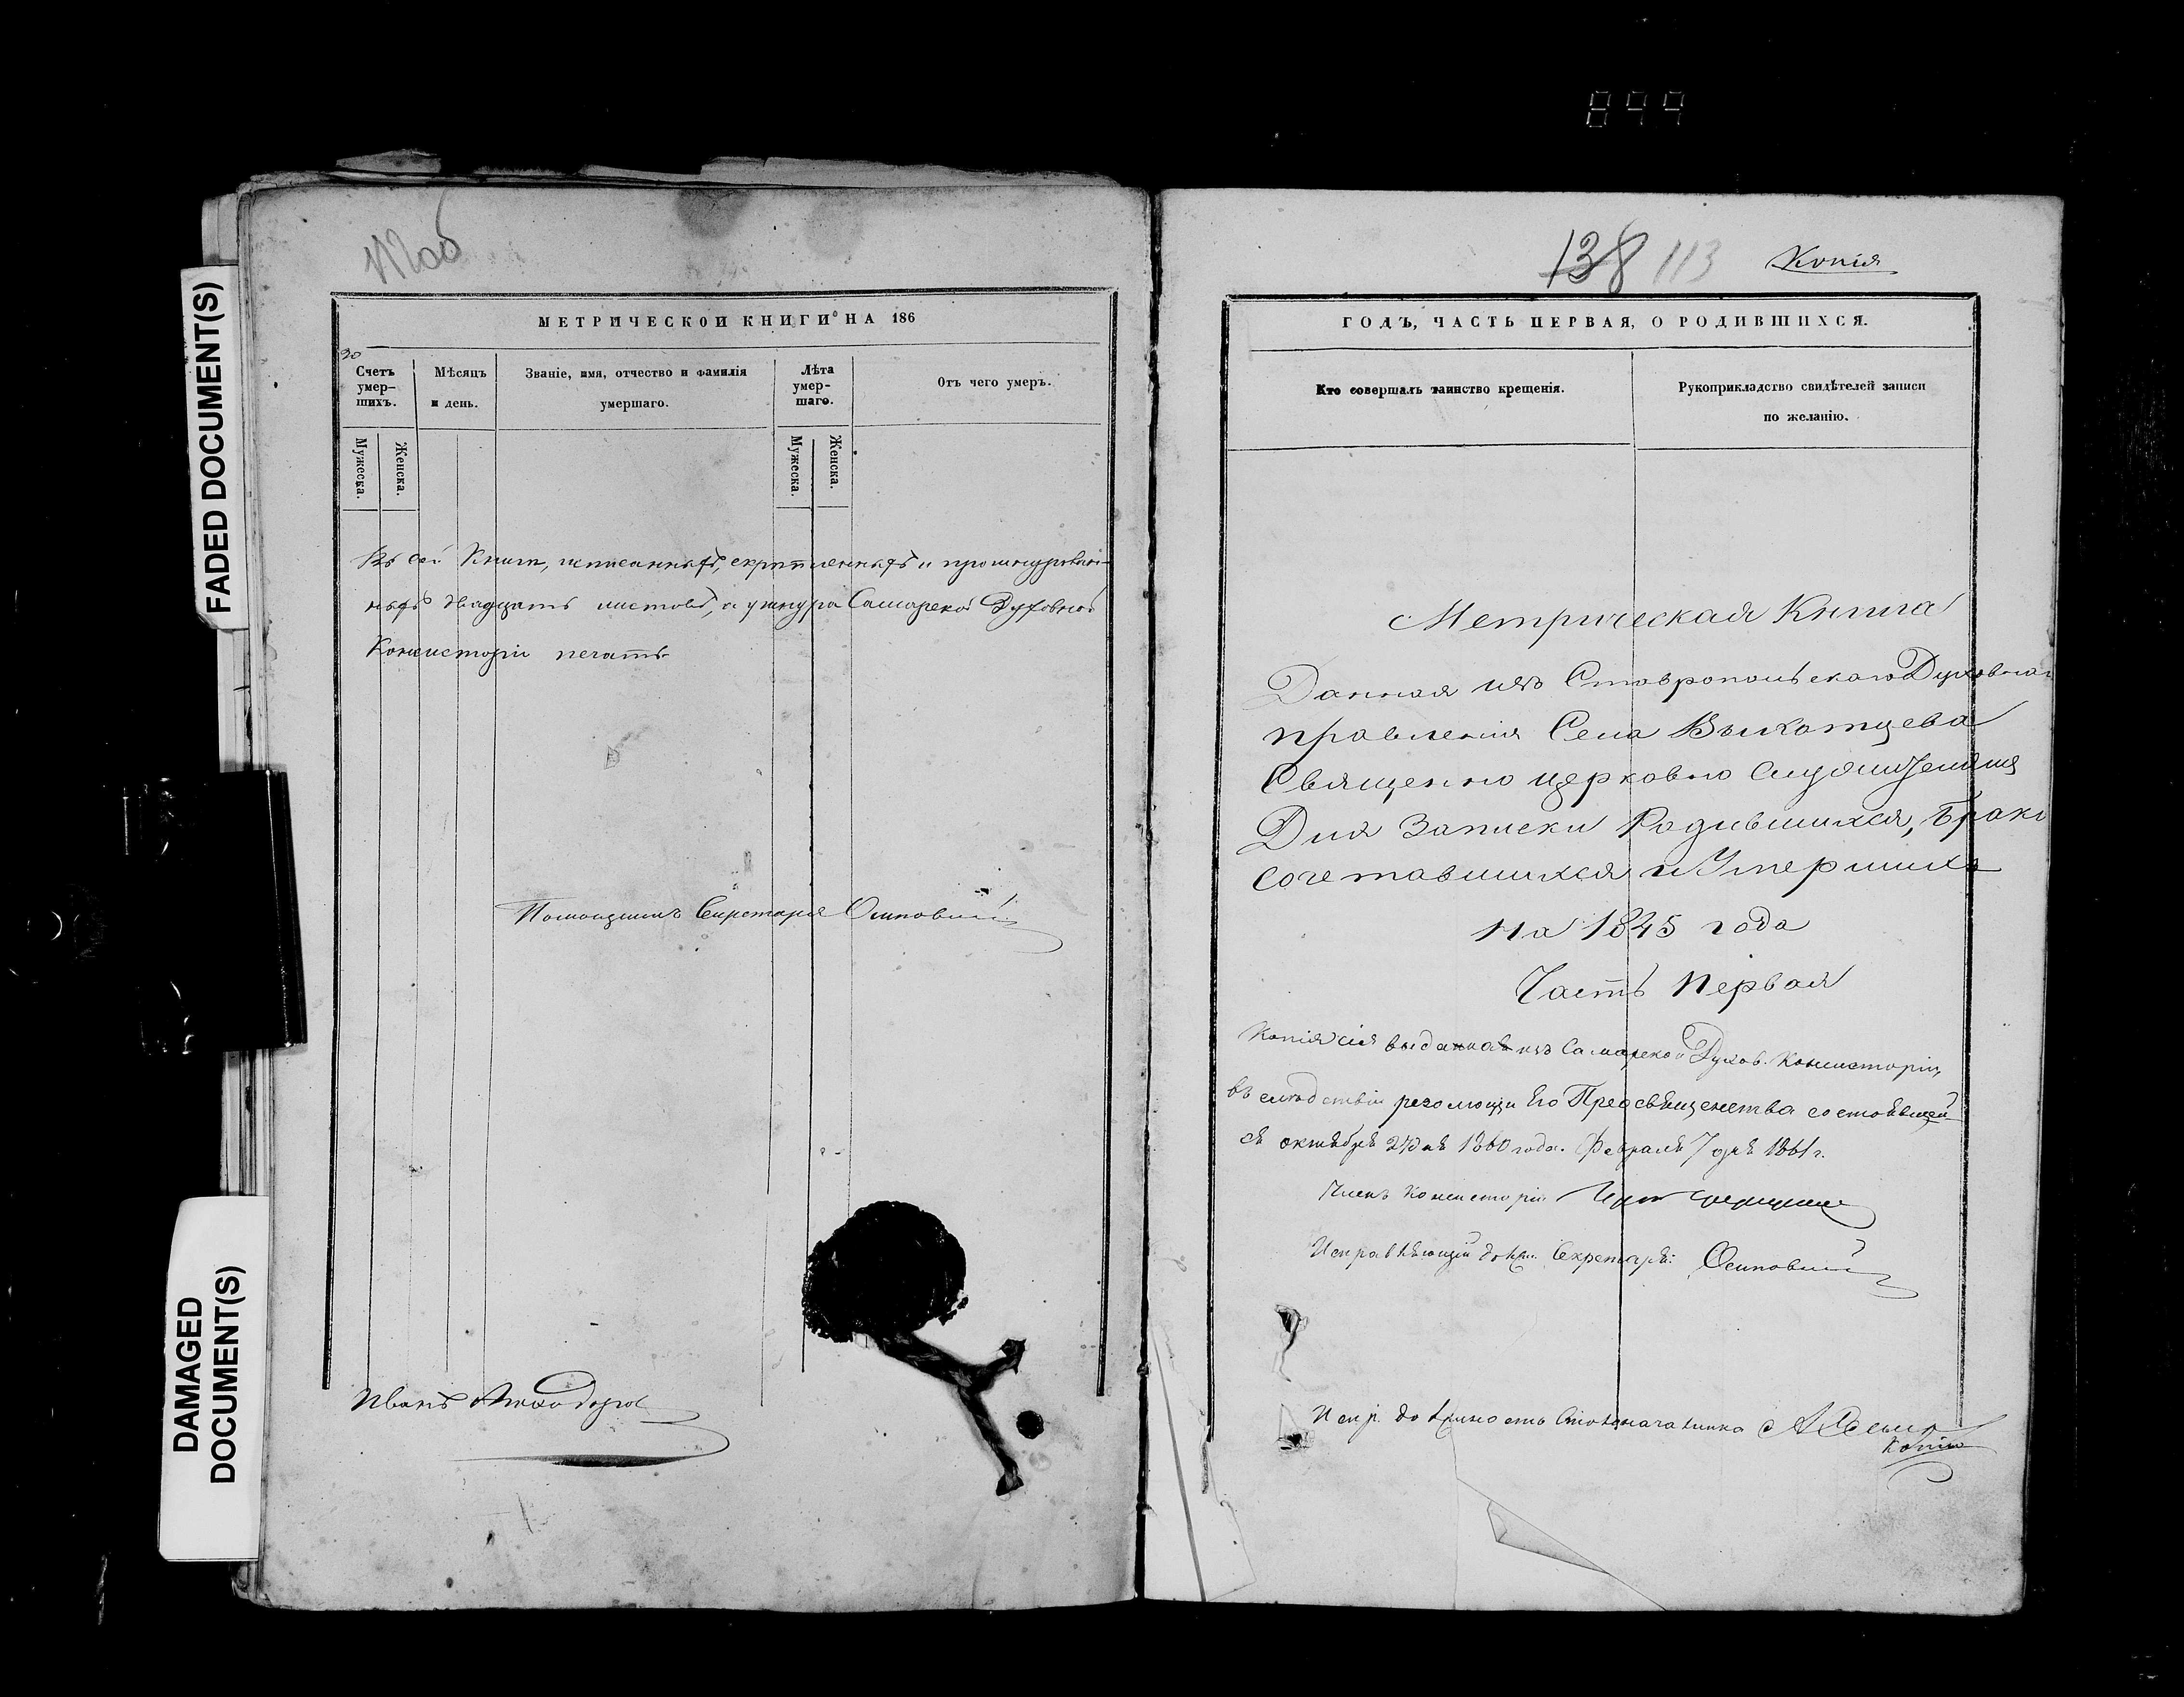 899
FADED DOCUMENT(S)
DAMAGED
DOCUMENT(S)
№ 06
МЕТРИЧЕСКОЙ КНИГИ НА 186
30
Счетъ умер-шихъ.
Мѣсяцъ и день.
Званіе, имя, отчество и фамилія умершаго.
Лѣта умер-шаго.
Отъ чего умеръ.
Мужеска.
Женска.
Мужеска.
Женска.
Въ сей Книгѣ, исписанныхъ, скрѣпленныхъ и прошнурован-
ныхъ двадцать листовъ, а у шнура Самарской Духовной
Консисторіи печать
Помощникъ Секретаря Осиповъ
Иванъ
138 113 Копія
ГОДЪ, ЧАСТЬ ПЕРВАЯ, О РОДИВШИХСЯ.
Кто совершалъ таинство крещенія.
Рукоприкладство свидѣтелей записи
по желанію.
Метрическая Книга
Данная изъ Ставропольскаго Духовнаго
правленія Села Выкотцева
Священно церковно служителямъ
Для Записки Родившихся, Брако
сочетавшихся и Умершихъ
на 1845 года
Часть Первая
Копія сія выданная изъ Самарской Духов. Консисторіи,
въ слѣдствіи резолюціи Его Преосвященства состоявшей-
ся октября 24 дня 1860 года. Февраля 7 дня 1861 г.
Членъ Консисторіи
Исправляющій должн. Секретаря: Осиповъ
Испр. должность Столоначальника
Копія